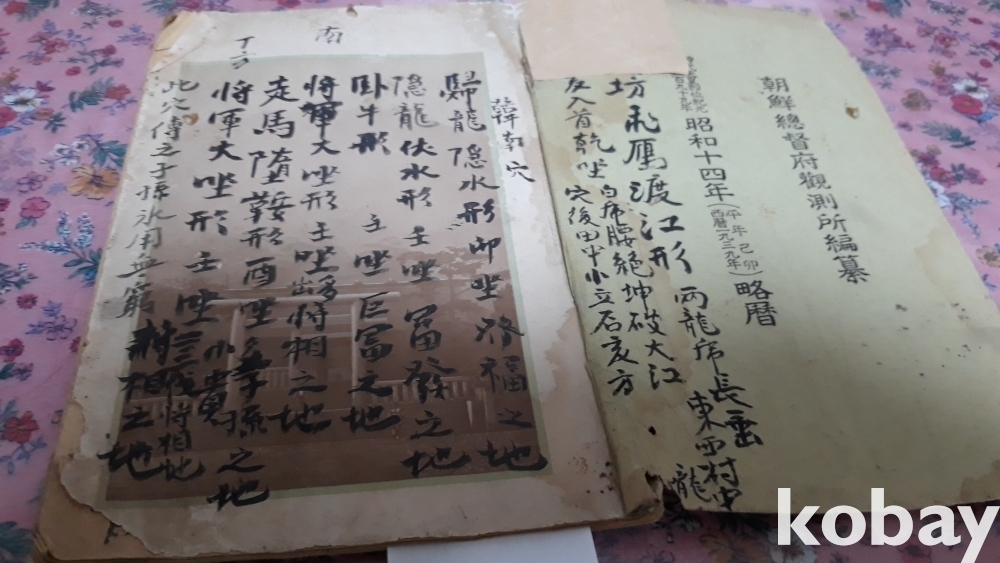 朝鮮總督府觀測所編纂
昭和十四年(平年己卯 西曆一九三九年)略曆
兩龍虎長垂
東西村中
飛雁渡江形
龍
坊
白虎腰絶坤破大江
友入首乾坐
穴後田中小立石亥方
南
韓南穴
歸龍隱水形卯坐 發福之地
隱龍伏水形壬坐 富發之地
臥牛形 壬坐 巨富之地
將軍大坐形壬坐 多出將相之地
走馬墮鞍形酉坐 子孫 之地
將軍大坐形壬坐 小貴
三代將相地
此穴傳之子孫永用無窮
將相之地
kobay